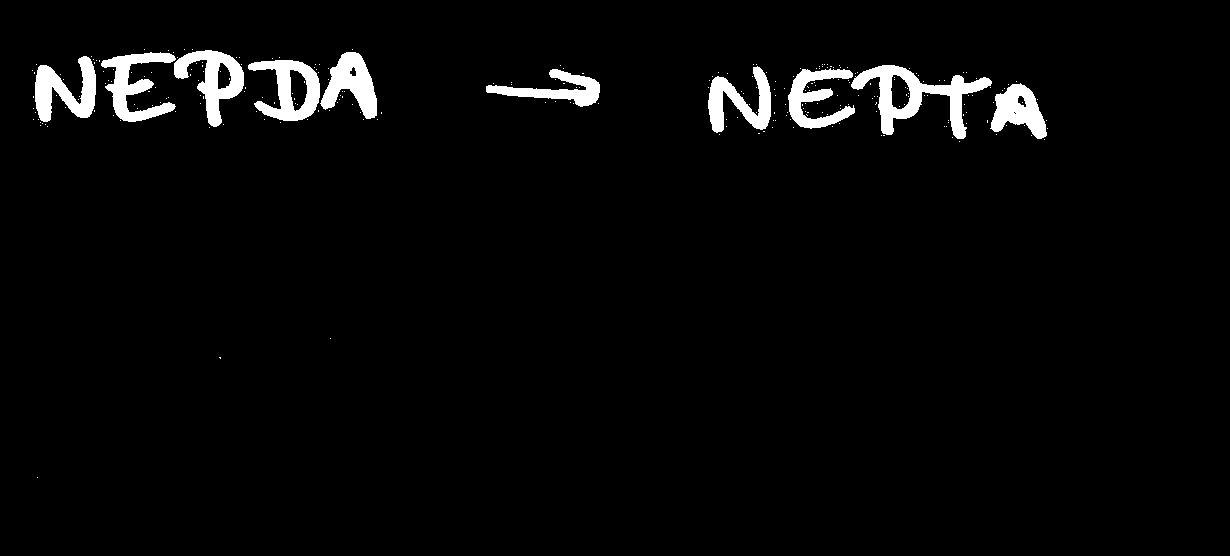 NEPDA → NEPTA